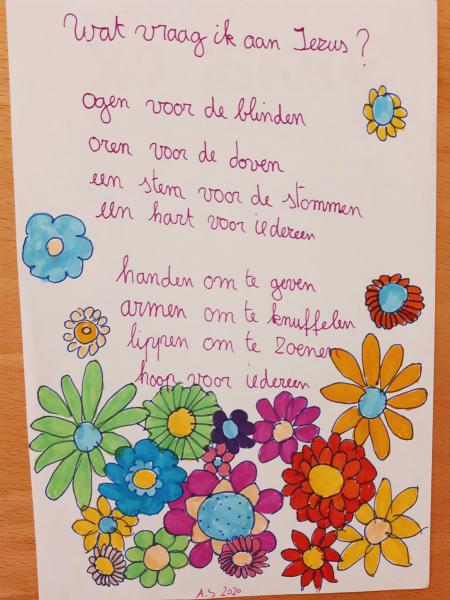 Wat vraag ik aan Jezus?
ogen voor de blinden
oren voor de doven
een stem voor de stommen
een hart voor iedereen
handen om te geven
armen om te knuffelen
lippen om te zoenen
hoop voor iedereen
A.S 2020